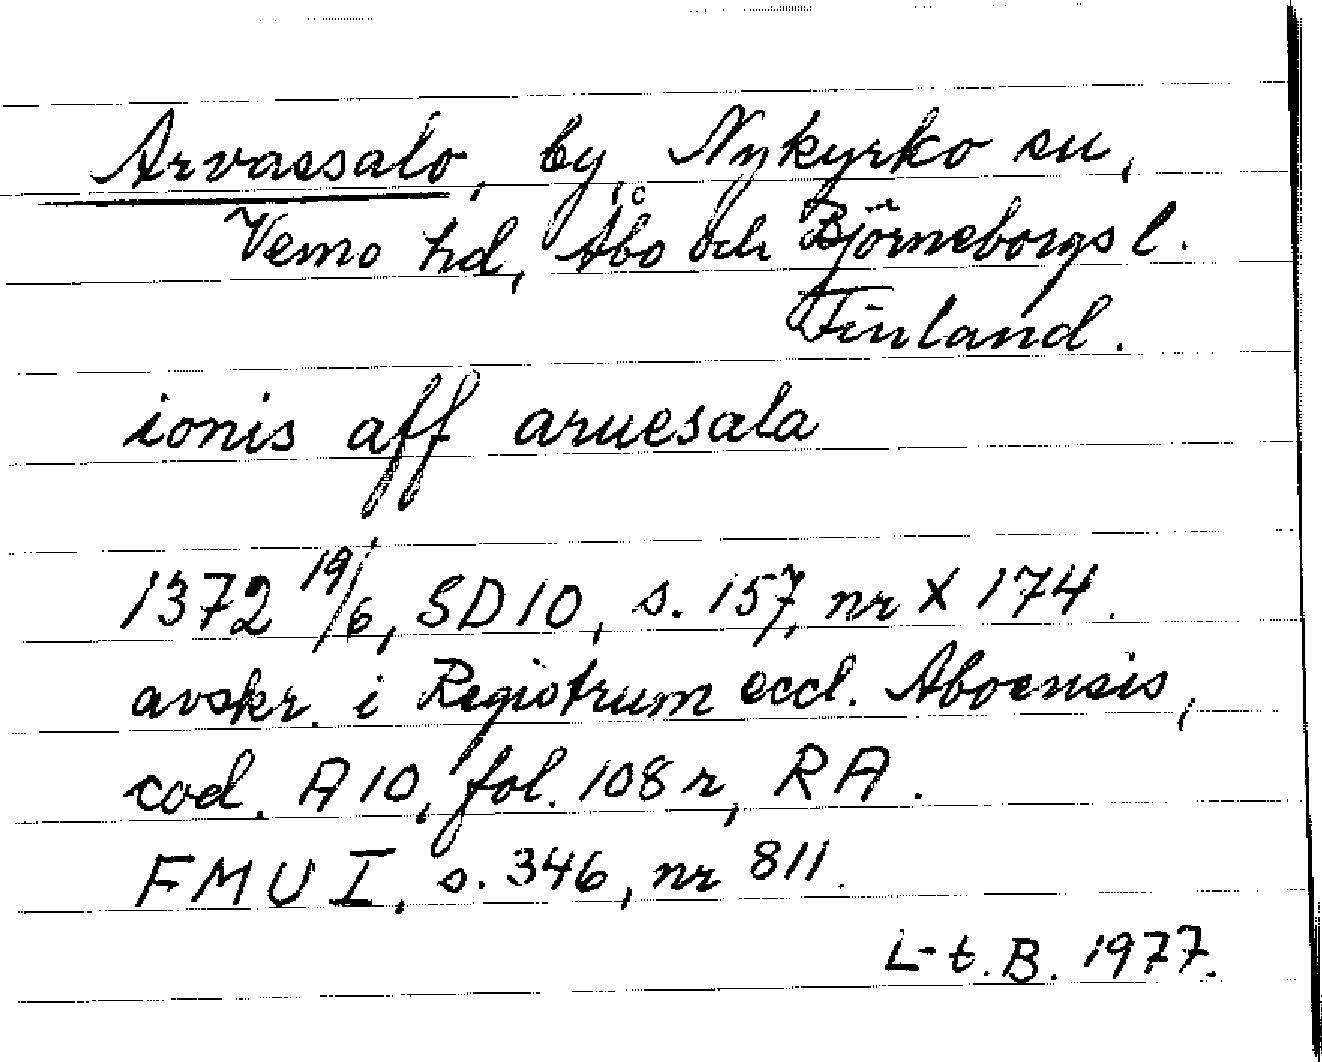 Arvassalo, by, Nykyrko sn,
Vemo hd, Åbo och Björneborgs l.
Finland.
ionis aff aruesala
1372 19/6, SD 10, s. 157, nr X 174.
avskr. i Registrum eccl. Aboensis,
cod. A 10, fol. 108 r, RA.
FMU I, s. 346, nr 811.
L-t. B. 1977.